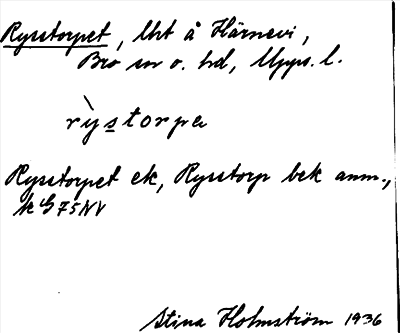 Rysstorpet, lht å Härnevi,
Bro sn o. hd, Upps. l.
rỳstorpa
Rysstorpet ek, Rysstorp bek anm.,
k G 75 NV
Stina Holmström 1936